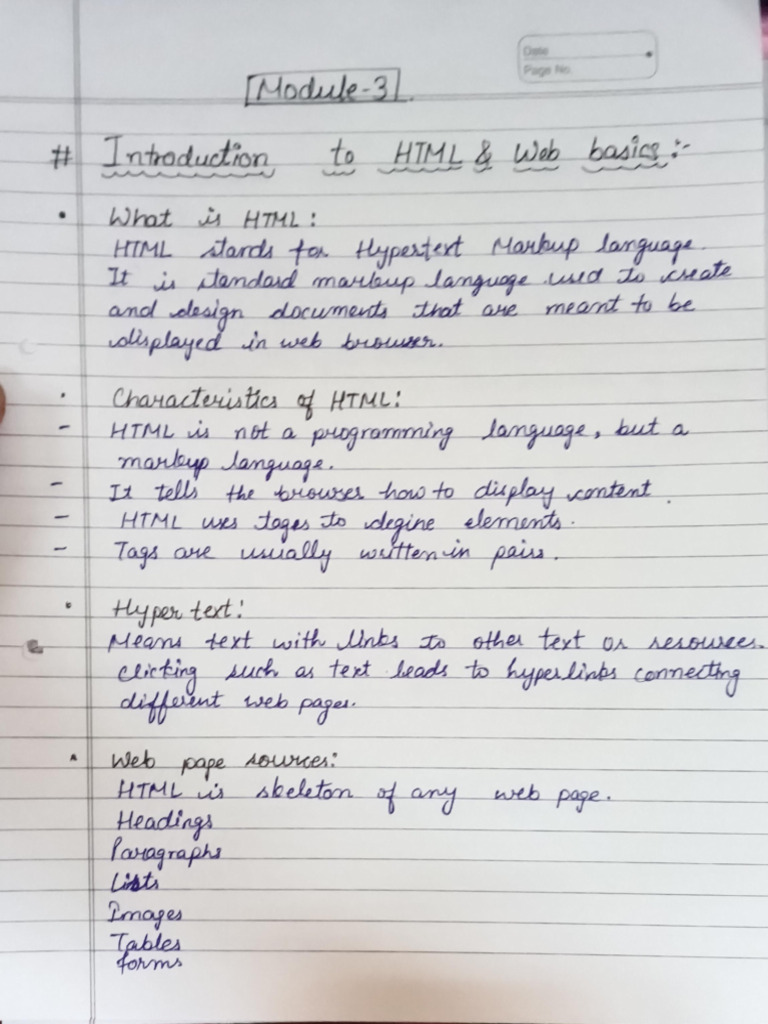 Date
Page No.
Module-3
# Introduction to HTML & Web basics:-
• What is HTML:
HTML stands for Hypertext Markup language.
It is standard markup language used to create
and design documents that are meant to be
displayed in web browser.
• Characteristics of HTML:
- HTML is not a programming language, but a
markup language.
- It tells the browser how to display content.
- HTML uses tages to degine elements.
- Tags are usually written in pairs.
• Hyper text:
Means text with links to other text or resources.
clicking such as text leads to hyperlinks connecting
different web pages.
• Web pape sources:
HTML is skeleton of any web page.
Headings
Paragraphs
Lists
Images
Tables
forms